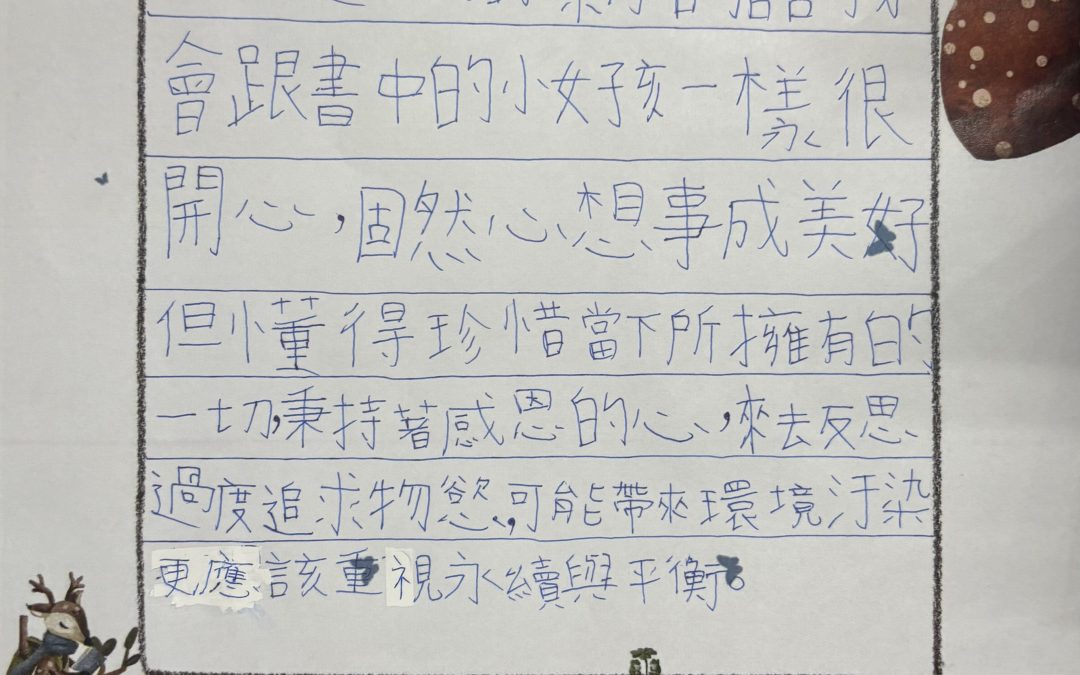 會跟書中的小女孩一樣很
開心,固然心想事成美好
但懂得珍惜當下所擁有的
一切,秉持著感恩的心,來去反思
過度追求物慾,可能帶來環境汙染
更應該重視永續與平衡。